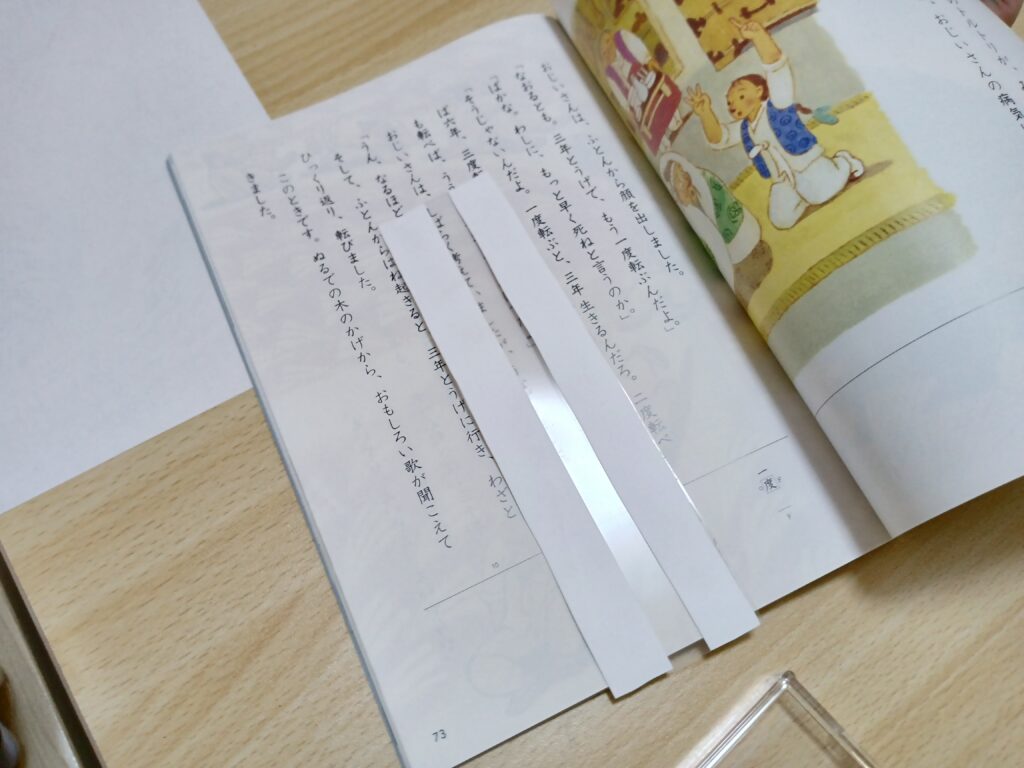 トルトリが、
おじいさんの病気
おじいさんは、ふとんから顔を出しました。
「なおるとも。三年とうげで、もう一度転ぶんだよ。」
「ばかな。わしに、もっと早く死ねと言うのか。」
「そうじゃないんだよ。一度転ぶと、三年生きるんだろ。二度転べ
ば六年、三度
も転べば、う
おじいさんは、しばらく考えていま
「うん、なるほど
そして、ふとんからはね起きると、三年とうげに行き、わざと
ひっくり返り、転びました。
このときです。ぬるでの木のかげから、おもしろい歌が聞こえて
きました。
一度
10
73